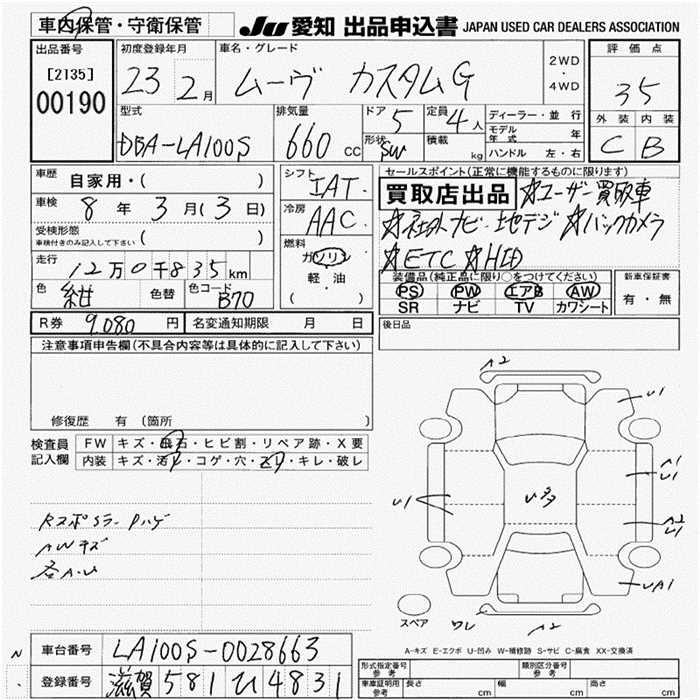 車内保管・守衛保管 JU 愛知 出品申込書 JAPAN USED CAR DEALERS ASSOCIATION
出品番号 初度登録年月 車名・グレード 2WD・4WD 評価点
[2135] 00190 23 2月 ムーヴ カスタムG 35
型式 排気量 ドア 定員 ディーラー・並行 外装 内装
DBA-LA100S 660cc 5 4人 モデル年式 年 C B
形状 SW 積載 kg ハンドル 左・右
車歴 自家用・( ) シフト IAT. セールスポイント(正常に機能するものに限ります)
車検 8年3月(3日) 冷房 AAC. 買取店出品 ☆ユーザー買取車
受検形態 車検付きのみ記入して下さい ( ) ☆社外ナビ・地デジ ☆バックカメラ
走行 12万0千835km 燃料 ガソリン・軽油 ( ) ☆ETC ☆HID
色 紺 色替 色コード B70 装備品(純正品に限り○をつけてください) 新車保証書
PS PW エアB AW 有・無
SR ナビ TV カワシート
R券 9,080円 名変通知期限 月 日 後日品
注意事項申告欄(不具合内容等は具体的に記入して下さい)
修復歴 有 (箇所 )
検査員記入欄 FW キズ・飛石・ヒビ割・リペア跡・X要
内装 キズ・汚レ・コゲ・穴・スレ・キレ・破レ
A2
U1
A1
U1
U1
A2
U1
UA1
ワレ
A2
AWキズ
各A・U
スペア
A-キズ E-エクボ U-凹み W-補修跡 S-サビ C-腐食 XX-交換済
N 車台番号 LA100S-0028663
登録番号 滋賀 581 ひ 4831
形式指定番号 参考 類別区分番号 参考
車庫証明用 参考 長さ cm 幅 cm 高さ cm